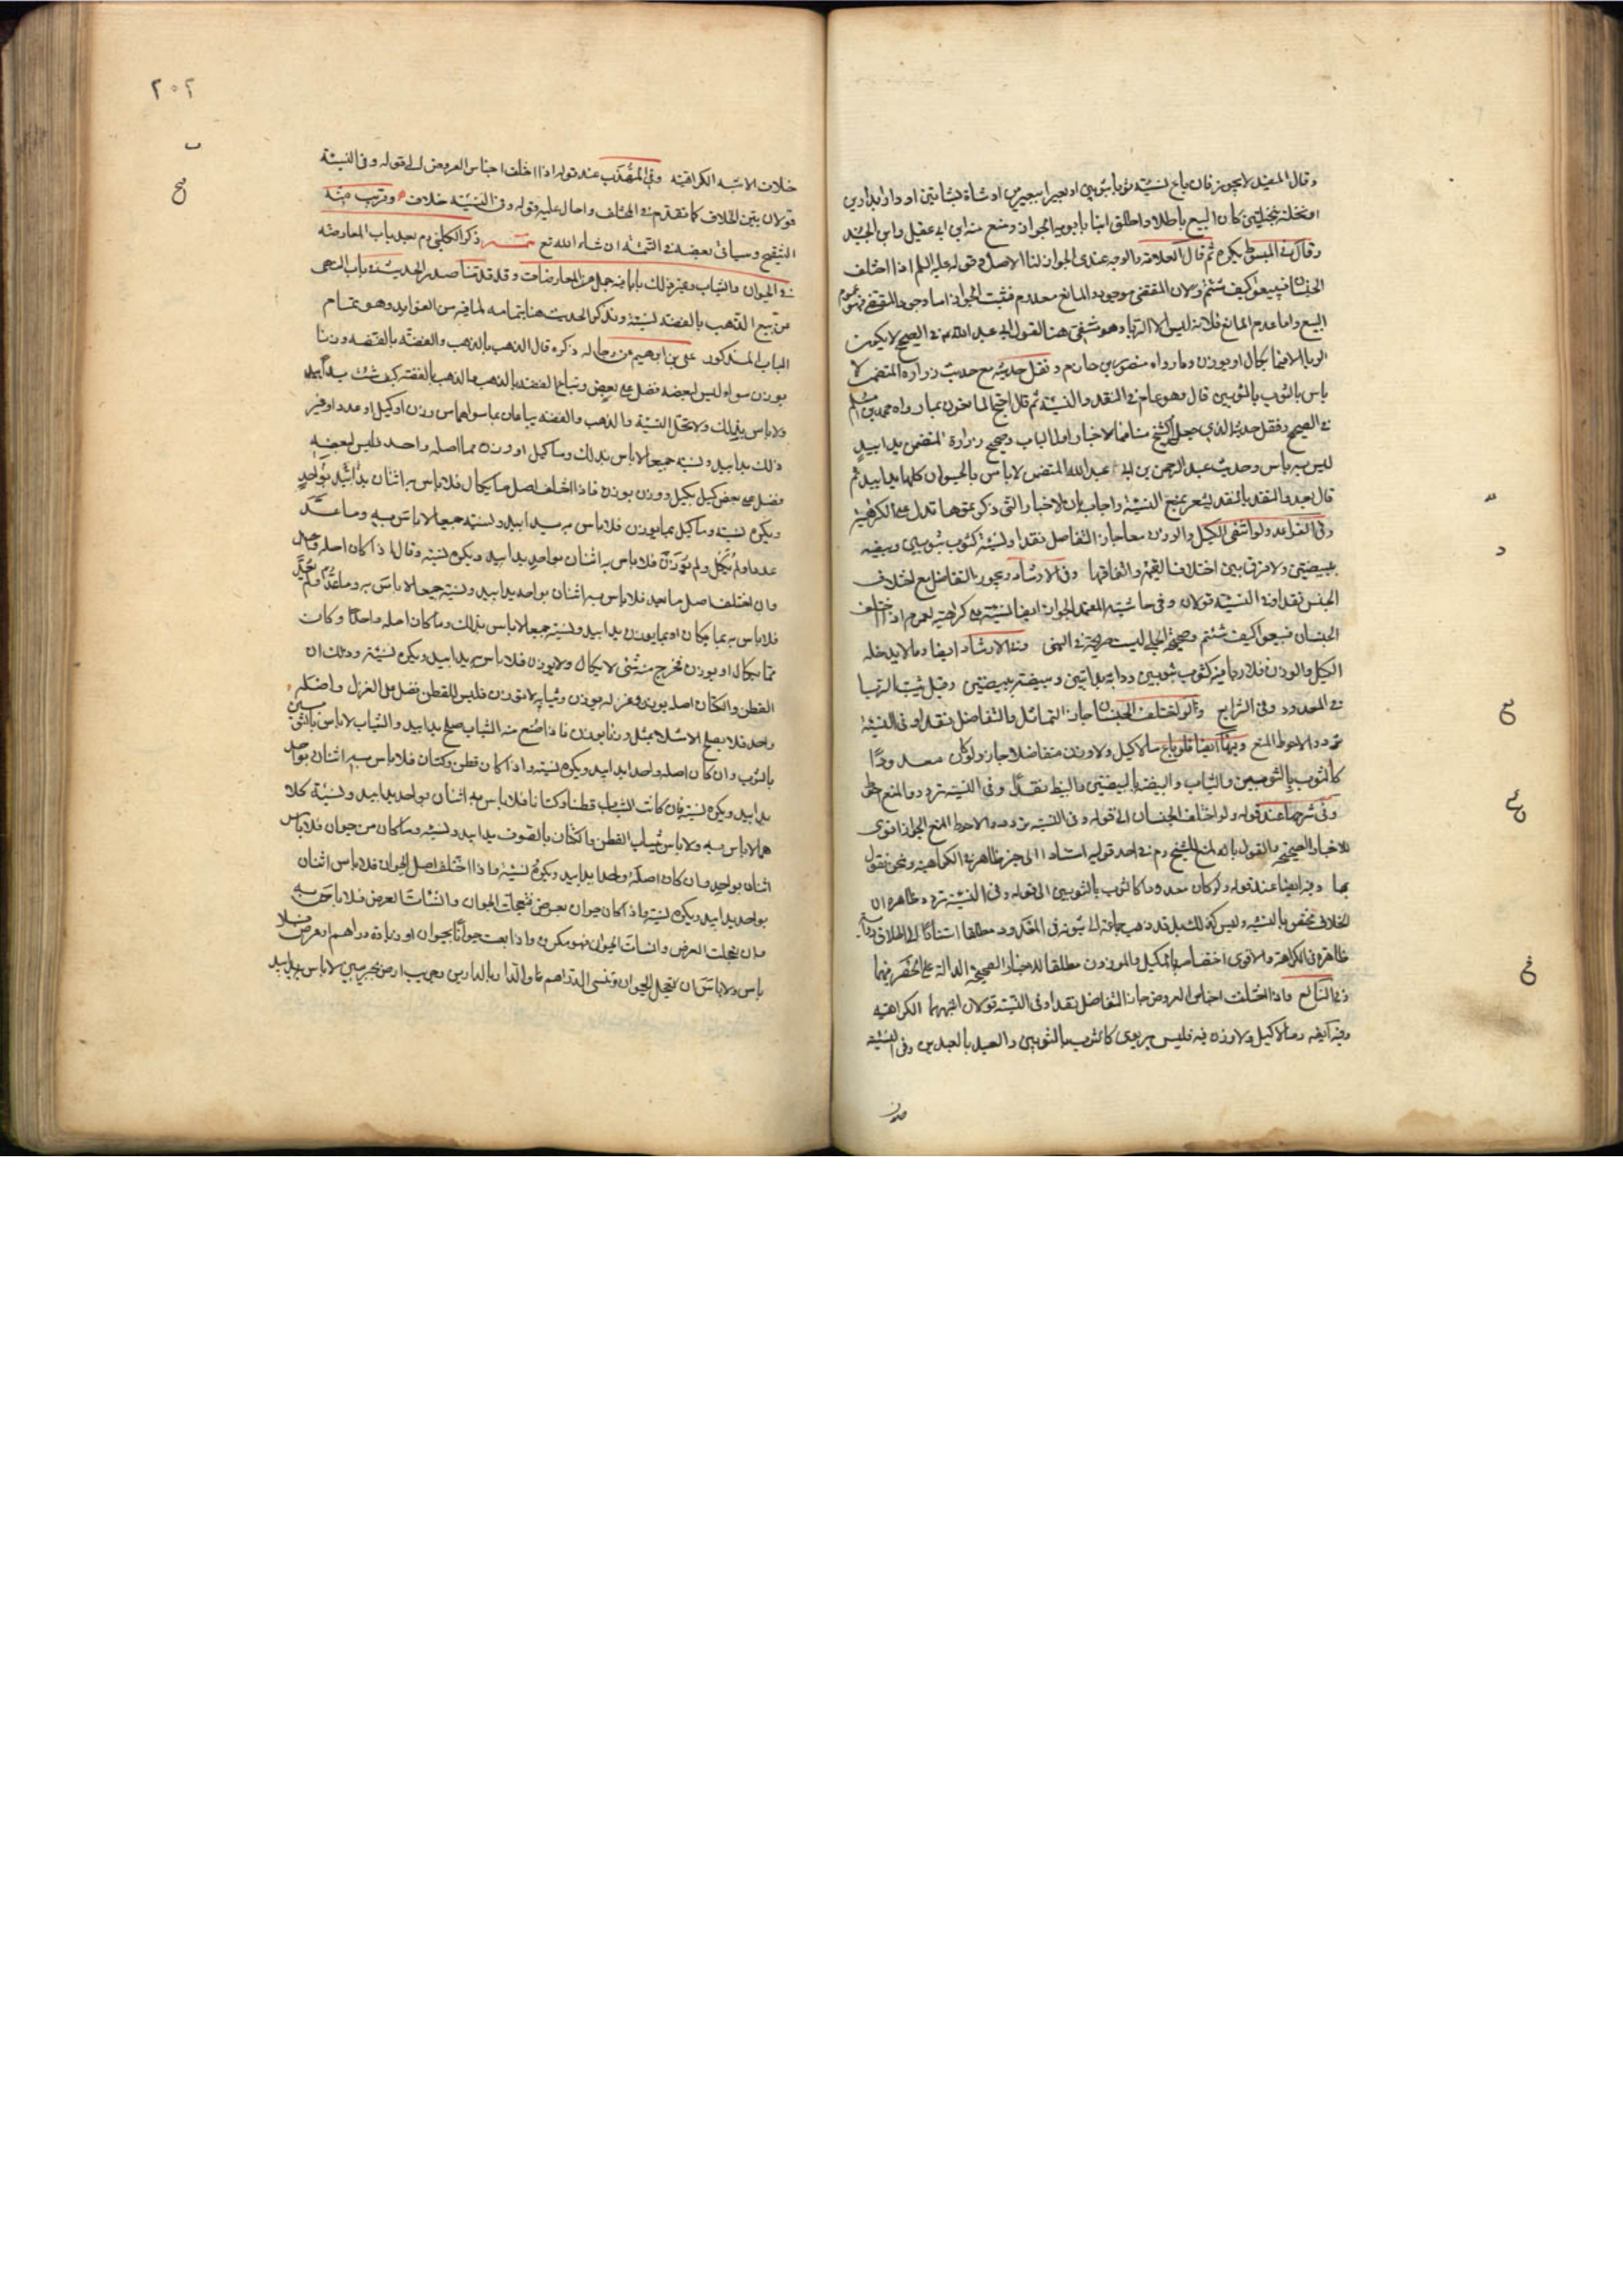 وقال المفيد لا يجوز فان باع نسيئة ثوبا بثوبين او بعيرا ببعيرين او شاة بشاتين او دارا بدارين
او نخلة بنخلتين كان البيع باطلا واطلق ابنا بابويه الجواز ومنع منه ابن ابي عقيل وابن الجنيد
وقال في المبسوط يكره ثم قال العلامة والوجه عندي الجواز لنا الاصل وقوله عليه السلم اذا اختلف
الجنسان فبيعوا كيف شئتم ولان المقتضي موجود والمانع معدوم فثبت الجواز اما وجود المقتضي فهو عموم
البيع واما عدم المانع فلانه ليس الا الربا وهو منتفي هنا لقول ابي عبد الله في الصحيح لا يكون
الربا الا فيما يكال او يوزن وما رواه منصور بن حازم ونقل حديثه مع حديث زرارة المتضمن لا
باس بالثوب بالثوبين قال وهو عام في النقد والنسيئة ثم قال احتج المانعون بما رواه محمد بن مسلم
في الصحيح ونقل حديثه الذي جعل الشيخ منافيا لاخبار اول الباب وصحيح زرارة المتضمن يدا بيد
ليس به باس وحديث عبد الرحمن بن ابي عبد الله المتضمن لا باس بالحيوان كلها يدا بيد ثم
قال بعد والتقييد بالنقد يشعر بمنع النسيئة واجاب بان الاخبار التي ذكرتموها تدل على الكراهية
وفي القواعد ولو انتفى الكيل والوزن معا جاز التفاضل نقدا ونسيئة كثوب بثوبين وبيضة
ببيضتين ولا فرق بين اختلاف القيمة واتفاقها وفي الارشاد ويجوز التفاضل مع اختلاف
الجنس نقدا وفي النسيئة قولان وفي حاشيته المعتمد الجواز ايضا نسيئة مع كراهية لعموم اذا اختلف
الجنسان فبيعوا كيف شئتم وصحيحة الحلبي ليست صريحة في النهي وفي الارشاد ايضا وما لا يدخله
الكيل والوزن فلا ربا فيه كثوب بثوبين ودابة بدابتين وبيضة ببيضتين وقيل يثبت الربا
في المعدود وفي الشرايع ولو اختلف الجنسان جاز التماثل والتفاضل نقدا وفي النسيئة
تردد والاحوط المنع وفيها ايضا فلو باع ما لا كيل ولا وزن متفاضلا جاز ولو كان معدودا
كالثوب بالثوبين والثياب والبيضة بالبيضتين والبيض نقدا وفي النسيئة تردد والمنع احوط
وفي شرحها عند قوله ولو اختلف الجنسان الى قوله وفي النسيئة تردد والاحوط المنع الجواز اقوى
للاخبار الصحيحة والقول بالمنع للشيخ ره في احد قوليه استنادا الى خبر ظاهر في الكراهية ونحن نقول
بها وفيه ايضا عند قوله ولو كان معدودا كالثوب بالثوبين الى قوله وفي النسيئة تردد ظاهره ان
الخلاف مختص بالنسيئة وليس كذلك بل قد ذهب جماعة الى ثبوته في المعدود مطلقا استنادا الى اطلاق رواية
ظاهرة في الكراهة والاقوى اختصاصه بالمكيل والموزون مطلقا للاخبار الصحيحة الدالة على الحصر فيهما
وفي النافع واذا اختلف اجناس العروض جاز التفاضل نقدا وفي النسيئة قولان اشبههما الكراهية
وفيه ايضا وما لا كيل ولا وزن فيه فليس بربوي كالثوب بالثوبين والعبد بالعبدين وفي النسيئة
٢٠٢
خلاف الاشبه الكراهية وفي المهذب عند قوله اذا اختلف اجناس العروض الى قوله وفي النسيئة
قولان يبين الخلاف كما تقدم في المختلف واحال عليه قوله وفي النسيئة خلاف وقريب منه
التنقيح وسياتي بعضه في التتمة ان شاء الله تع تتمة ذكر الكليني ره بعد باب المعاوضة
في الحيوان والثياب وغير ذلك بابا فيه جمل من المعاوضات وقد قدمنا صدر الحديث في باب النهي
عن بيع الذهب بالفضة نسيئة ونذكر الحديث هنا بتمامه لما فيه من الفوايد وهو بتمام
الباب المذكور علي بن ابرهيم عن رجاله ذكره قال الذهب بالذهب والفضة بالفضة وزنا
بوزن سواء ليس لبعضه فضل على بعض وتباع الفضة بالذهب والذهب بالفضة كيف شئت يدا بيد
ولا باس بذلك ولا تحل النسيئة والذهب والفضة يباعان بما سواهما من وزن او كيل او عدد او غير
ذلك يدا بيد ونسيئة جميعا لا باس بذلك وما كيل او وزن مما اصله واحد فليس لبعضه
فضل على بعض كيل بكيل ووزن بوزن فاذا اختلف اصل ما يكال فلا باس به اثنان بواحد يدا بيد
ويكره نسيئة وما كيل بما يوزن فلا باس به يدا بيد ونسيئة جميعا لا باس به وما عد
عددا ولم يكل ولم يوزن فلا باس به اثنان بواحد يدا بيد ويكره نسيئة وقال اذا كان اصله واحدا
وان اختلف اصل ما يعد فلا باس به اثنان بواحد يدا بيد ونسيئة جميعا لا باس به وما عد او لم يعد
فلا باس به بما يكال او بما يوزن يدا بيد ونسيئة جميعا لا باس بذلك وما كان اصله واحدا وكان
مما يكال او يوزن فخرج منه شئ لا يكال ولا يوزن فلا باس به يدا بيد ويكره نسيئة وذلك ان
القطن والكتان اصله يوزن وغزله يوزن وثيابه لا توزن فليس للقطن فضل على الغزل واصله
واحد فلا يصلح الا مثلا بمثل وزنا بوزن فاذا صنع منه الثياب صلح يدا بيد والثياب لا باس بالثوبين
بالثوب وان كان اصله واحدا يدا بيد ويكره نسيئة واذا كان قطن وكتان فلا باس به اثنان بواحد
يدا بيد ويكره نسيئة فان كانت الثياب قطنا وكتانا فلا باس به اثنان بواحد يدا بيد ونسيئة كلا
هما لا باس به ولا باس بثياب القطن والكتان بالصوف يدا بيد ونسيئة وما كان من حيوان فلا باس
اثنان بواحد وان كان اصله واحدا يدا بيد ويكره نسيئة واذا اختلف اصل الحيوان فلا باس اثنان
بواحد يدا بيد ويكره نسيئة واذا كان حيوان بعرض فتعجلت الحيوان وانسأت العرض فلا باس به
وان تعجلت العرض وانسأت الحيوان فهو مكروه واذا بعت حيوانا بحيوان او زيادة دراهم او عرض فلا
باس ولا باس ان تعجل الحيوان وتنسي الدراهم والدار بالدارين وجريب ارض بجريبين لا باس به يدا بيد